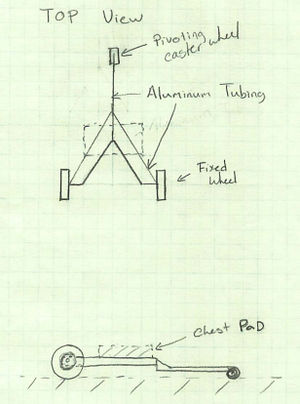 TOP View
Pivoting
caster wheel
Aluminum Tubing
Fixed
wheel
chest PAD